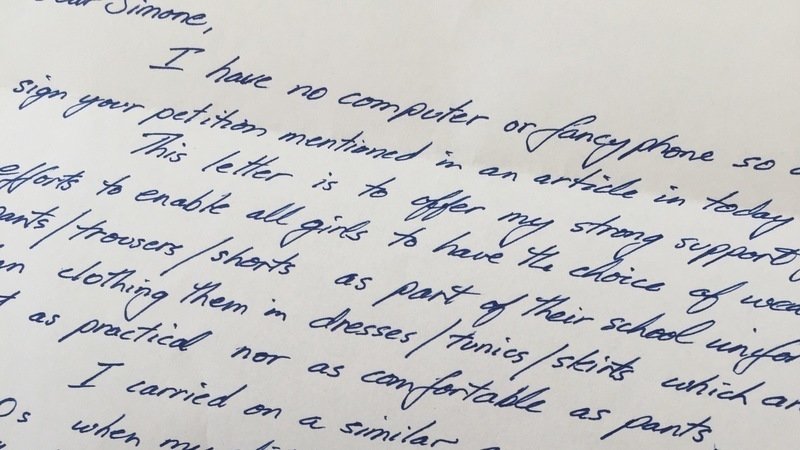 Simone,
I have no computer or fancy phone so
sign your petition mentioned in an article in today
This letter is to offer my strong support
efforts to enable all girls to have the choice of
pants/trousers/shorts as part of their school
clothing them in dresses/tunics/skirts which
as practical nor as comfortable as pants
I carried on a similar
when